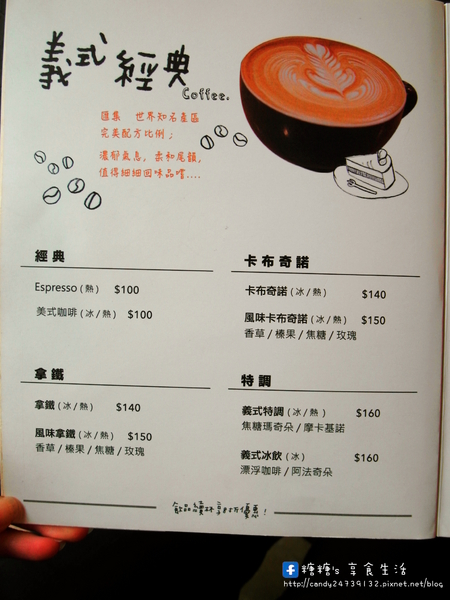 義式經典
Coffee.
匯集 世界知名產區
完美配方比例；
濃郁氣息，柔和尾韻，
值得細細回味品嚐....
經典
Espresso (熱) $100
美式咖啡 (冰/熱) $100
卡布奇諾
卡布奇諾 (冰/熱) $140
風味卡布奇諾 (冰/熱) $150
香草/榛果/焦糖/玫瑰
拿鐵
拿鐵 (冰/熱) $140
風味拿鐵 (冰/熱) $150
香草/榛果/焦糖/玫瑰
特調
義式特調 (冰/熱) $160
焦糖瑪奇朵/摩卡基諾
義式冰飲 (冰) $160
漂浮咖啡/阿法奇朵
飲品續杯享8折優惠！
糖糖's 享食生活
http://candy24739132.pixnet.net/blog